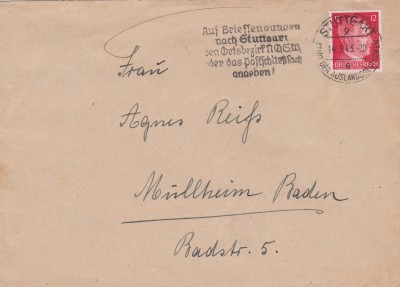 Auf Briefsendungen
nach Stuttgart
den Ortsbezirk N,O,S,W,
oder das Postschließfach
angeben!
STUTTGART
9
14.
43.-20
STADT DER AUSLANDSDEUTSCHEN
12
DEUTSCHES REICH
Frau
Agnes Reiß
Müllheim Baden
Badstr. 5.